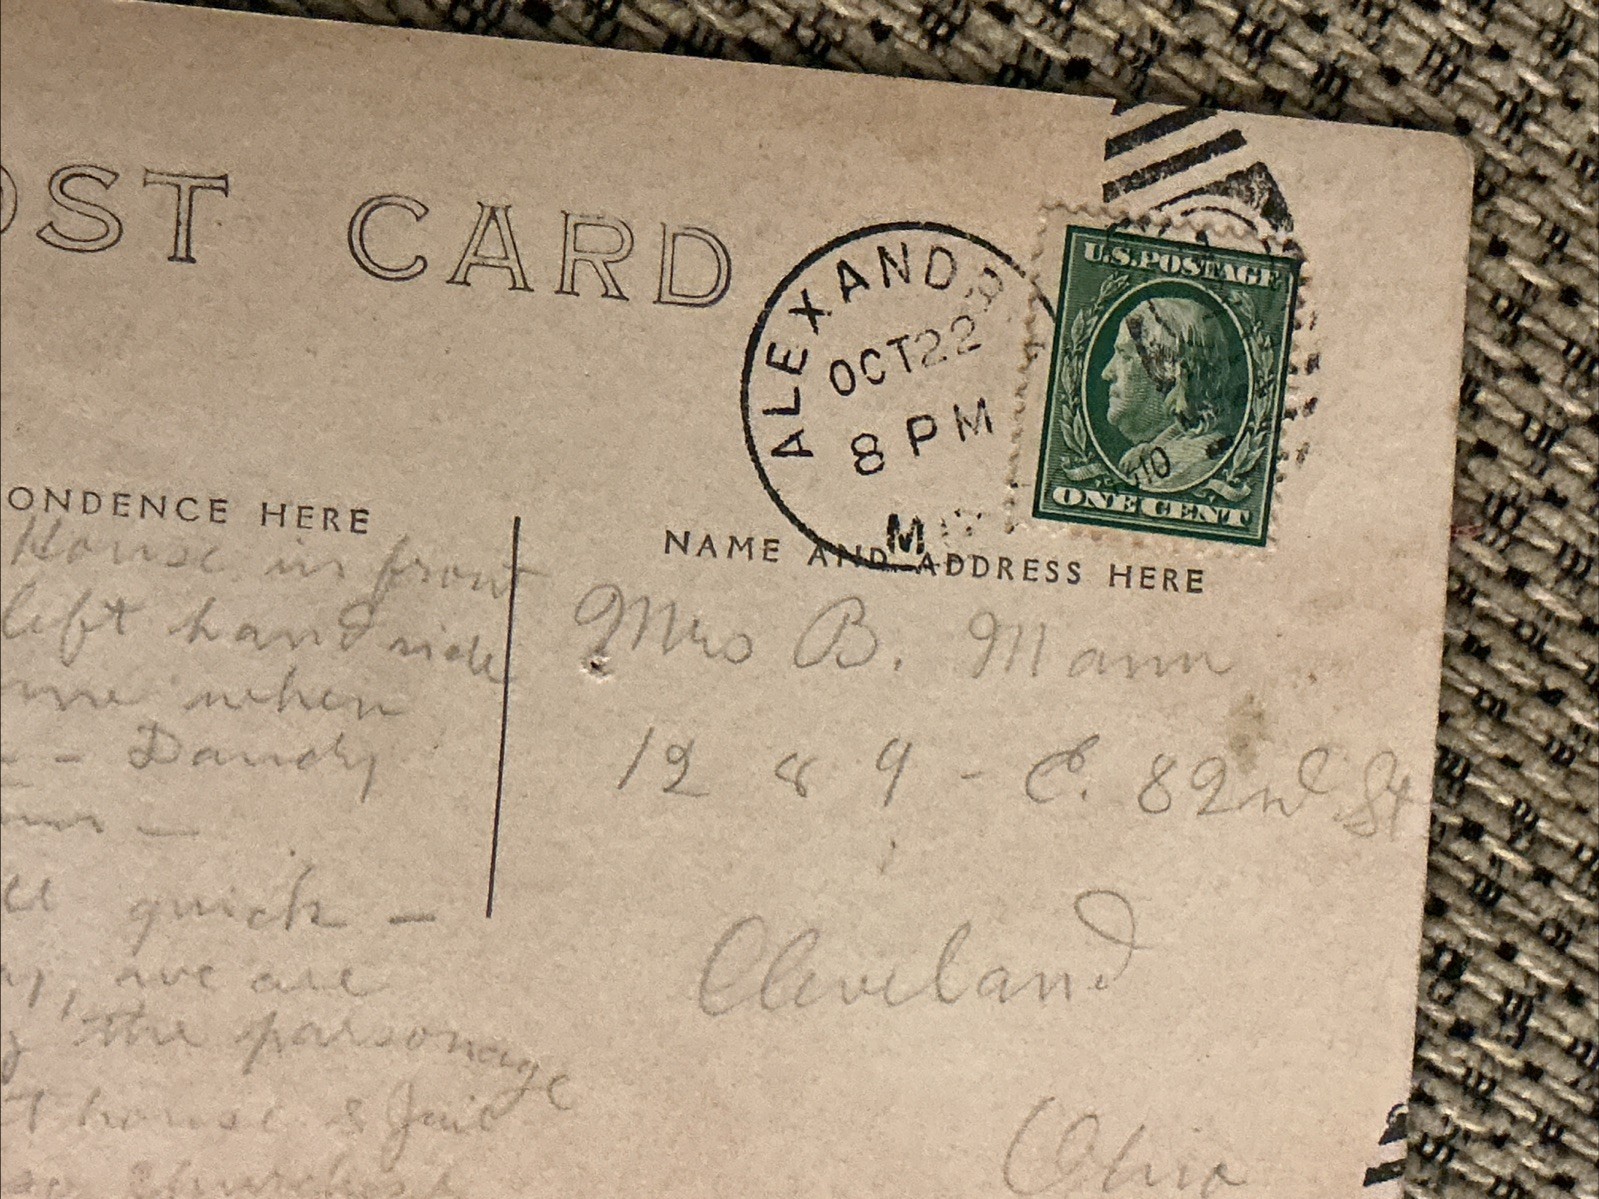 OST CARD
ALEXAND
OCT 22
8 PM
1910
M
U.S. POSTAGE
ONE CENT
ONDENCE HERE
NAME AND ADDRESS HERE
House in front
left hand side
when
- Dandy
quick -
, we are
the parsonage
house & Jail
Churches
Mrs B. Mann
1289 - E. 82nd St
Cleveland
Ohio